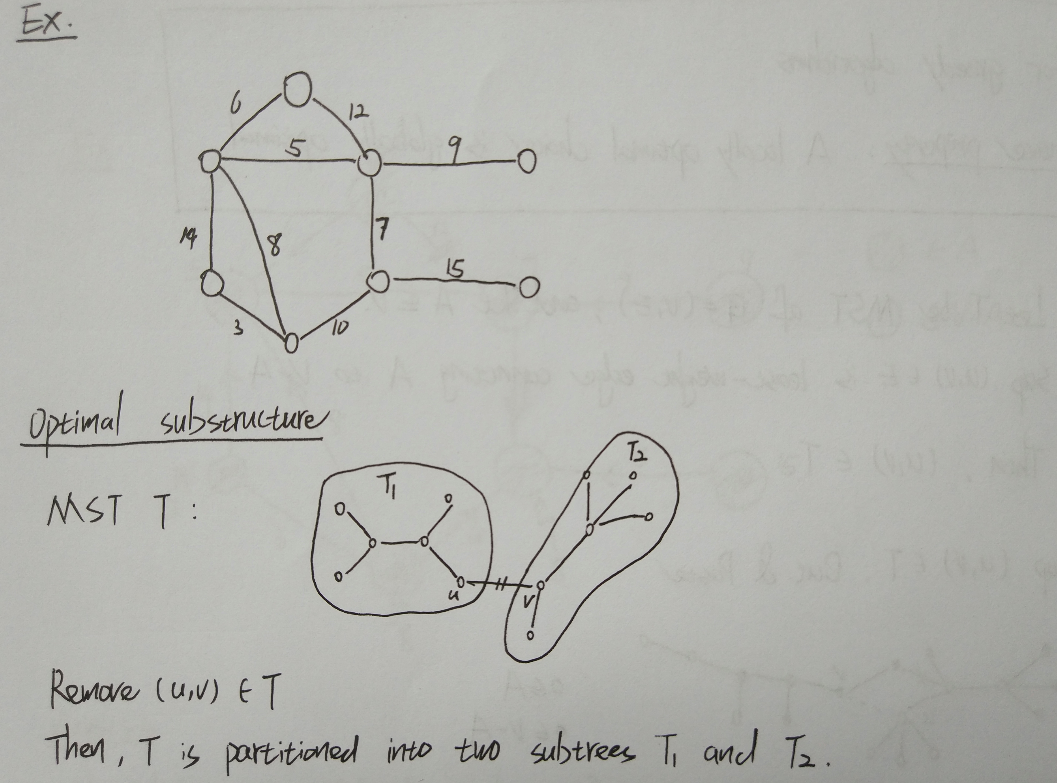 Ex.
6
12
5
9
14
8
7
15
3
10
Optimal substructure
MST T:
T1
T2
u
v
Remove (u,v) ∈ T
Then, T is partitioned into two subtrees T1 and T2.